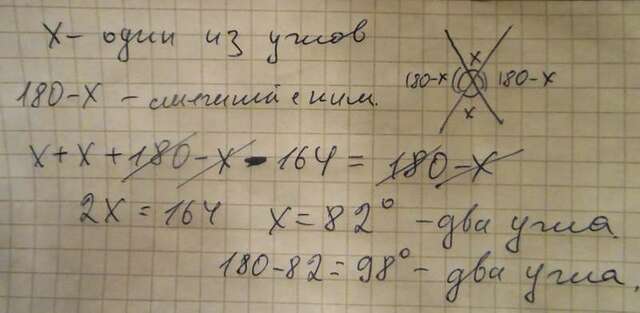 X - один из углов
180-X - смежный с ним.
X
180-X
180-X
X
X + X + 180 - X - 164 = 180 - X
2X = 164 X = 82° - два угла.
180 - 82 = 98° - два угла.